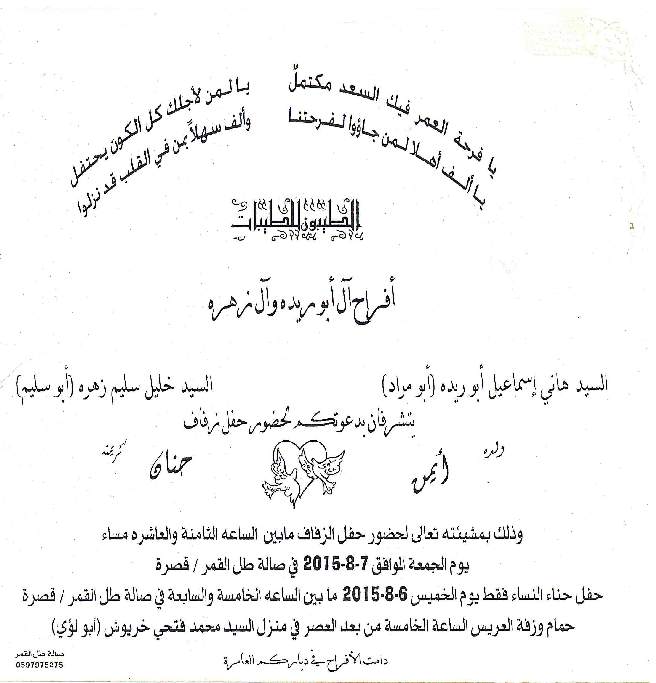 يا فرحة العمر فيك السعد مكتملّ
يا لمن لأجلك كل الكون يحتفل
يا ألف أهلا لمن جاؤوا لفرحتنا
وألف سهلاً بمن في القلب قد نزلوا
الطيبون للطيبات
أفراح آل أبو ريده وآل زهره
السيد هاني إسماعيل أبو ريده (أبو مراد)
السيد خليل سليم زهره (أبو سليم)
يتشرفان بدعوتكم لحضور حفل زفاف
ولده
أيمن
كريمته
حنان
وذلك بمشيئته تعالى لحضور حفل الزفاف مابين الساعه الثامنة والعاشره مساء
يوم الجمعة الموافق 7-8-2015 في صالة طل القمر / قصرة
حفل حناء النساء فقط يوم الخميس 6-8-2015 ما بين الساعه الخامسة والسابعة في صالة طل القمر / قصرة
حمام وزفة العريس الساعة الخامسة من بعد العصر في منزل السيد محمد فتحي خريوش (أبو لؤي)
دامت الأفراح في دياركم العامرة
صالة طل القمر
0597975275